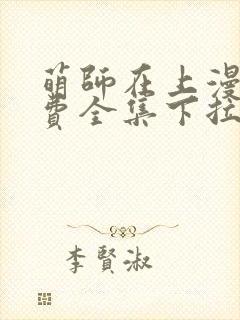 萌師在上漫
費全集下拉
李賢淑